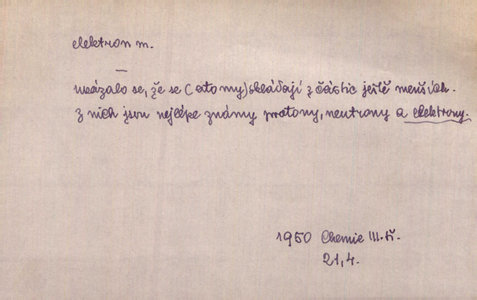 elektron m.
—
ukázalo se, že se (atomy) skládají z částic ještě menších.
z nich jsou nejlépe známy protony, neutrony a elektrony.
1950 Chemie III. tř.
21, 4.